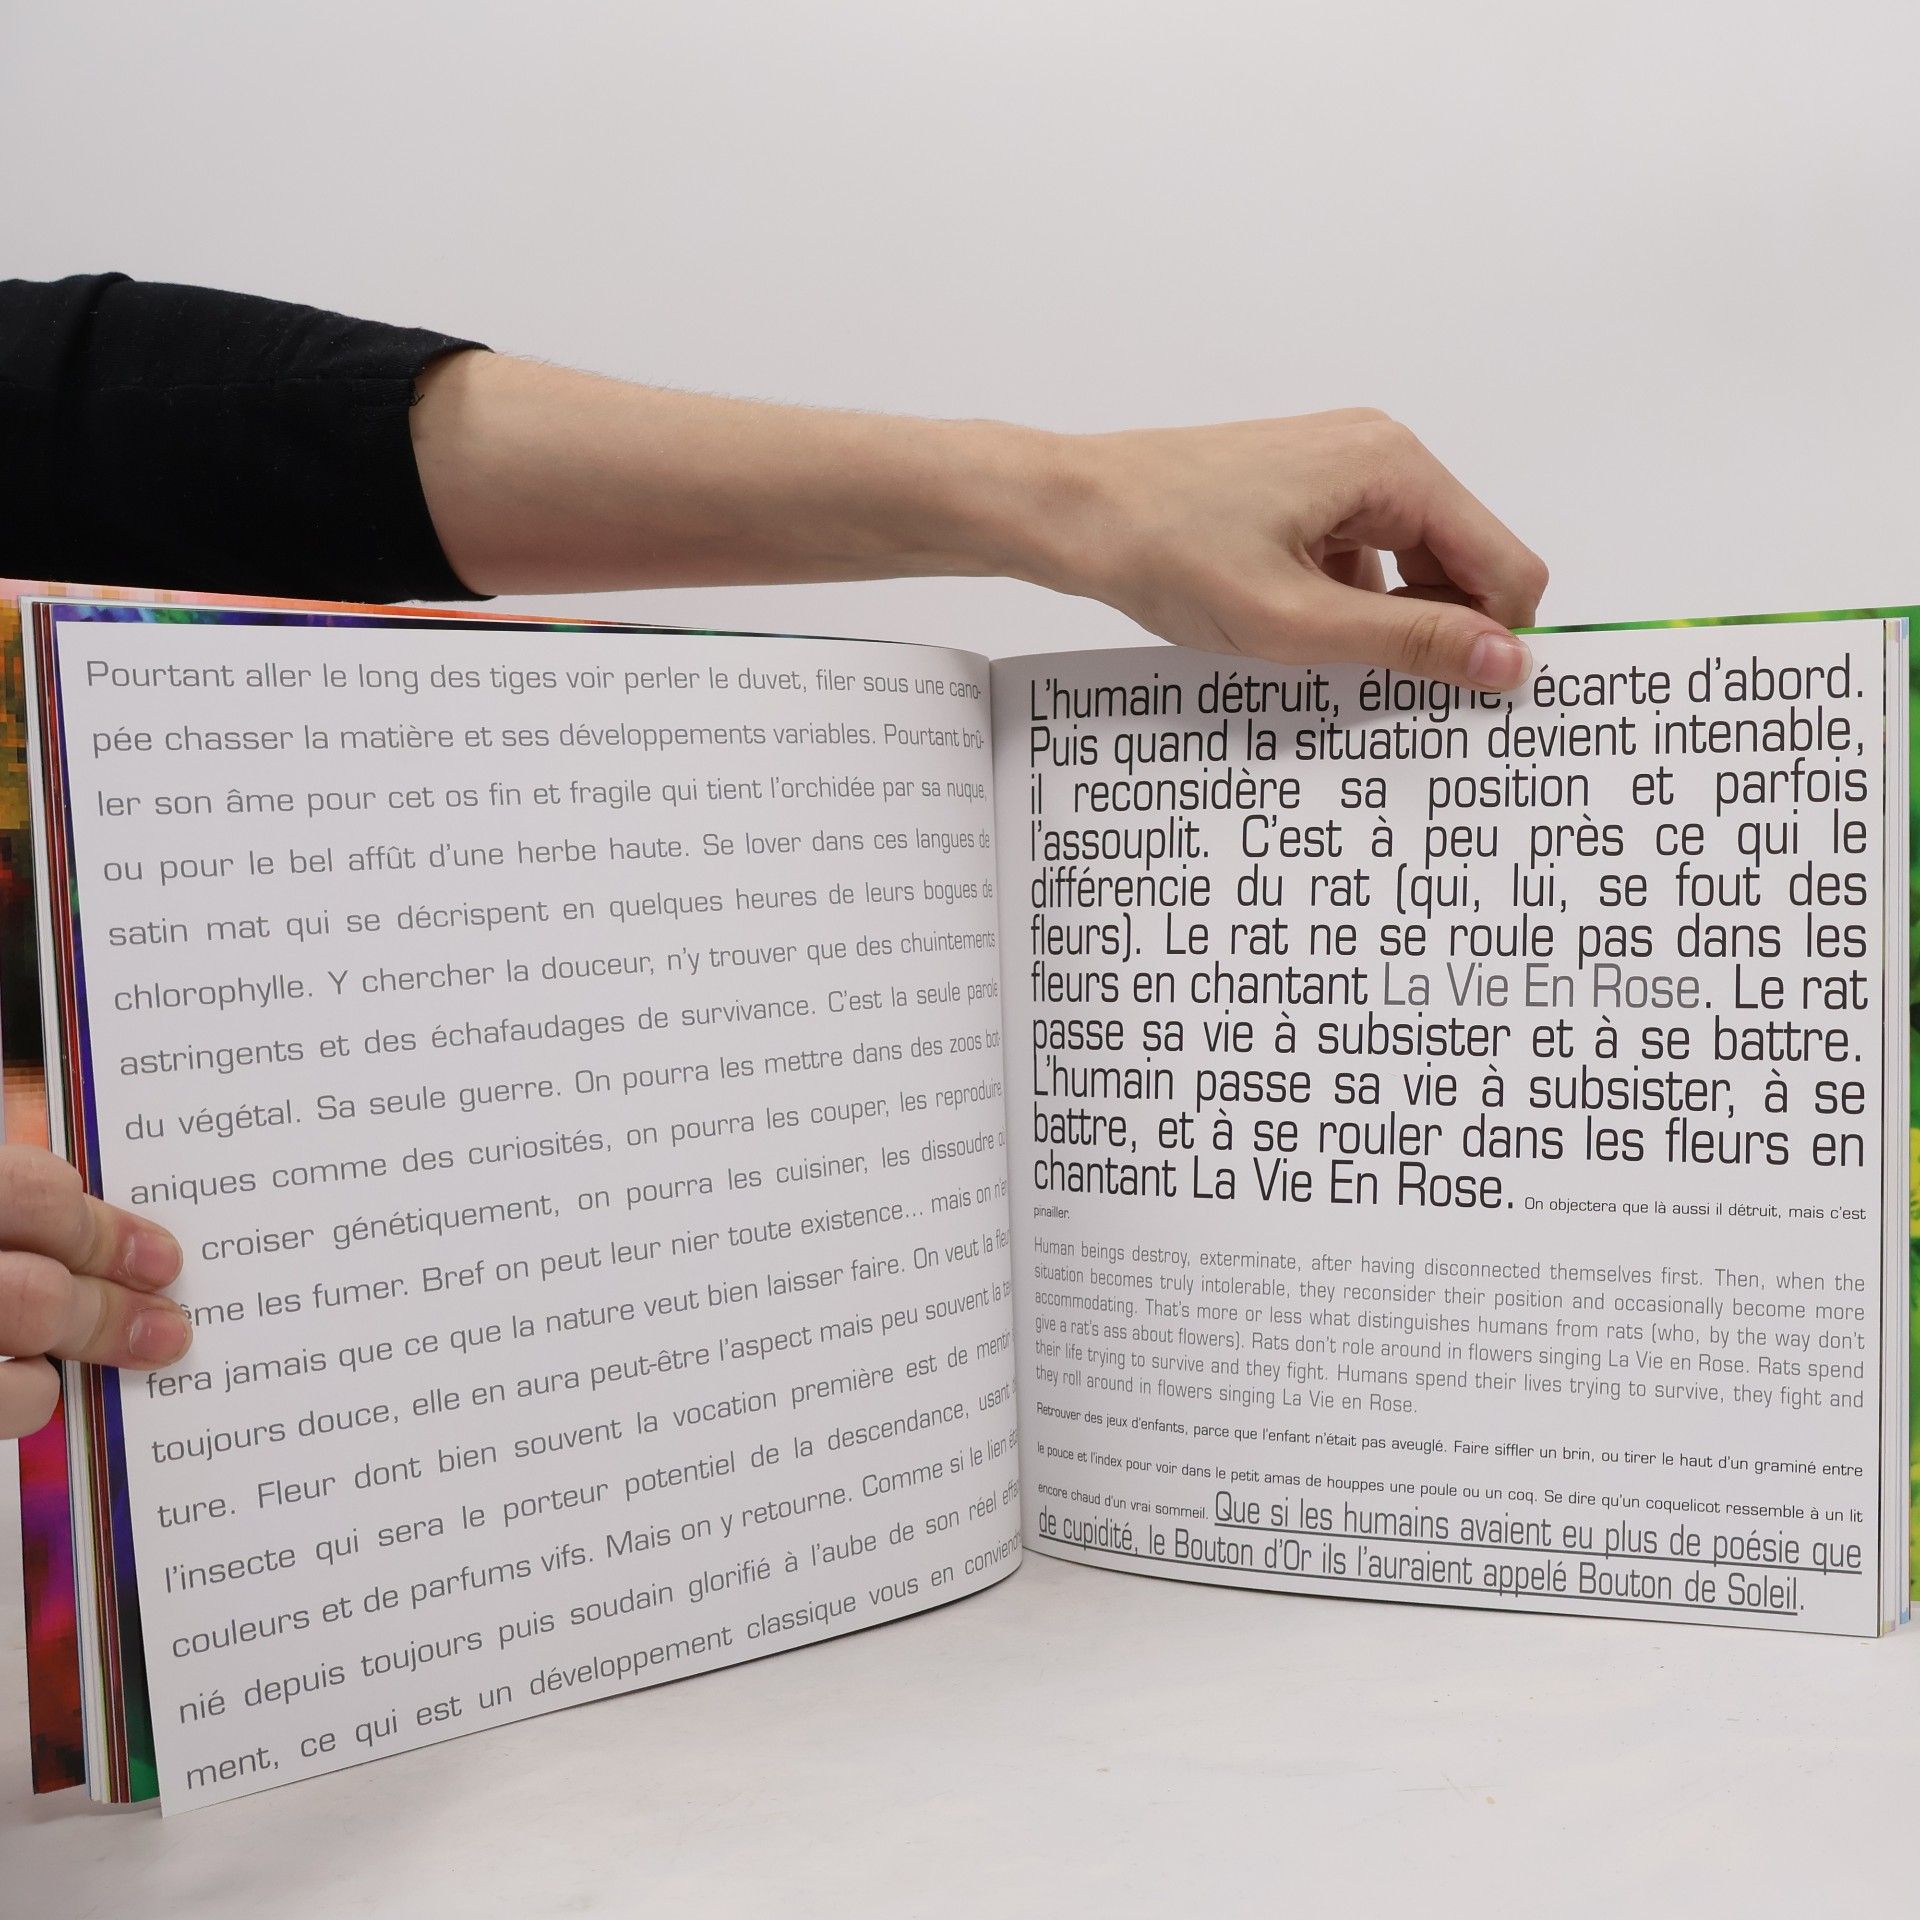 Pourtant aller le long des tiges voir perler le duvet, filer sous une cano-
pée chasser la matière et ses développements variables. Pourtant brû-
ler son âme pour cet os fin et fragile qui tient l'orchidée par sa nuque,
ou pour le bel affût d'une herbe haute. Se lover dans ces langues de
satin mat qui se décrispent en quelques heures de leurs bogues de
chlorophylle. Y chercher la douceur, n'y trouver que des chuintements
astringents et des échafaudages de survivance. C'est la seule parole
du végétal. Sa seule guerre. On pourra les mettre dans des zoos bot-
aniques comme des curiosités, on pourra les couper, les reproduire
croiser génétiquement, on pourra les cuisiner, les dissoudre
les fumer. Bref on peut leur nier toute existence... mais on n'en
fera jamais que ce que la nature veut bien laisser faire. On veut la fleur
toujours douce, elle en aura peut-être l'aspect mais peu souvent la
ture. Fleur dont bien souvent la vocation première est de mentir
l'insecte qui sera le porteur potentiel de la descendance, usant
couleurs et de parfums vifs. Mais on y retourne. Comme si le lien
nié depuis toujours puis soudain glorifié à l'aube de son réel
ment, ce qui est un développement classique vous en conviendrez
L'humain détruit, éloigne, écarte d'abord.
Puis quand la situation devient intenable,
il reconsidère sa position et parfois
l'assouplit. C'est à peu près ce qui le
différencie du rat (qui, lui, se fout des
fleurs). Le rat ne se roule pas dans les
fleurs en chantant La Vie En Rose. Le rat
passe sa vie à subsister et à se battre.
L'humain passe sa vie à subsister, à se
battre, et à se rouler dans les fleurs en
chantant La Vie En Rose. On objectera que là aussi il détruit, mais c'est
pinailler.
Human beings destroy, exterminate, after having disconnected themselves first. Then, when the
situation becomes truly intolerable, they reconsider their position and occasionally become more
accommodating. That's more or less what distinguishes humans from rats (who, by the way don't
give a rat's ass about flowers). Rats don't role around in flowers singing La Vie en Rose. Rats spend
their life trying to survive and they fight. Humans spend their lives trying to survive, they fight and
they roll around in flowers singing La Vie en Rose.
Retrouver des jeux d'enfants, parce que l'enfant n'était pas aveuglé. Faire siffler un brin, ou tirer le haut d'un graminé entre
le pouce et l'index pour voir dans le petit amas de houppes une poule ou un coq. Se dire qu'un coquelicot ressemble à un lit
encore chaud d'un vrai sommeil. Que si les humains avaient eu plus de poésie que
de cupidité, le Bouton d'Or ils l'auraient appelé Bouton de Soleil.